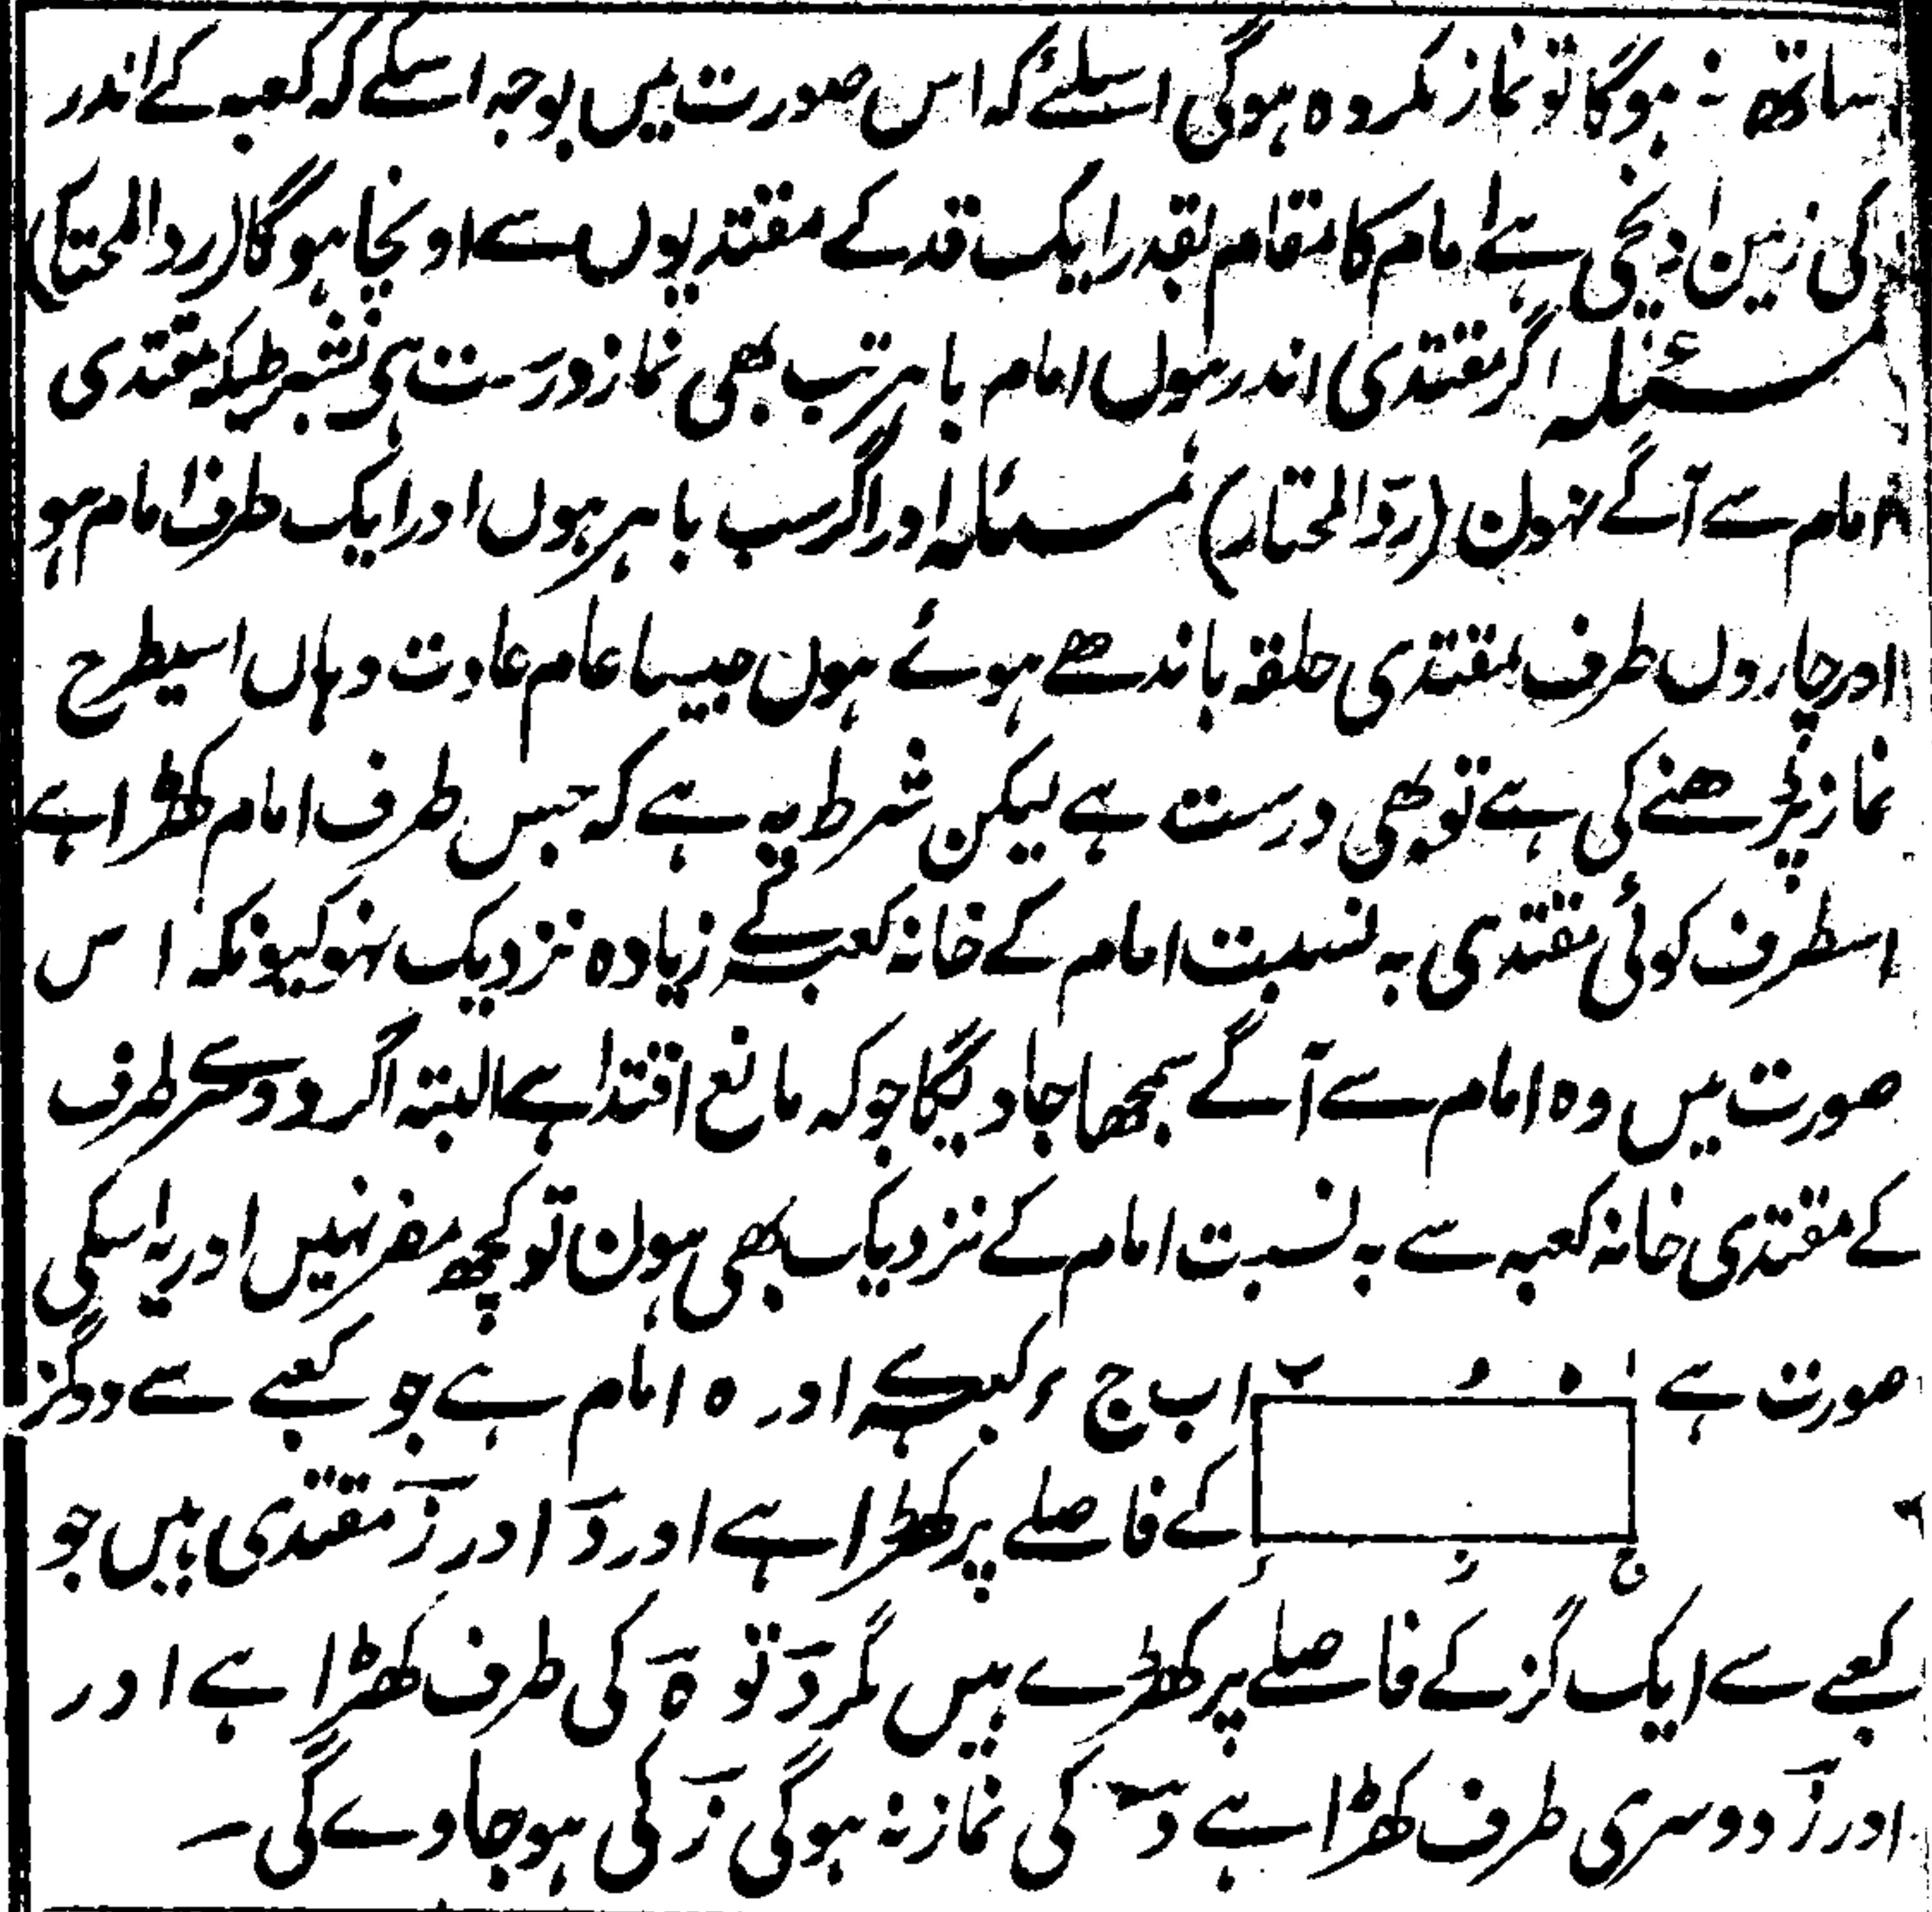 ساتھ نہ ہوگا تو نماز مکروہ ہوگی اسلئے کہ اس صورت میں بوجہ اسکے کہ کعبہ کے اندر
کی زمین اونچی ہے امام کا مقام بقدر ایک قد کے مقتدیوں سے اونچا ہوگا (رد المحتار)
مسئلہ اگر مقتدی اندر ہوں امام باہر تب بھی نماز درست ہی بشرطیکہ مقتدی
امام سے آگے نہون (ردّ المحتار) مسئلہ اور اگر سب باہر ہوں اور ایک طرف امام ہو
اور چاروں طرف مقتدی حلقہ باندھے ہوئے ہوں جیسا عام عادت وہاں اسیطرح
نماز پڑھنے کی ہے تو بھی درست ہے لیکن شرط یہ ہے کہ جس طرف امام کھڑا ہے
اسطرف کوئی مقتدی بہ نسبت امام کے خانہ کعبہ کے زیادہ نزدیک نہو کیونکہ اس
صورت میں وہ امام سے آگے سمجھا جاویگا جو کہ مانع اقتدا ہے البتہ اگر دوسرے طرف
کے مقتدی خانہ کعبہ سے بہ نسبت امام کے نزدیک بھی ہون تو کچھ مضر نہیں اور یہ اسکی
صورت ہے ا ب ج د کعبہ ہے اور ہ امام ہے جو کعبے سے دو گز
کے فاصلے پر کھڑا ہے اور وَ اور زَ مقتدی ہیں جو
ج ز د
کعبے سے ایک گز کے فاصلے پر کھڑے ہیں مگر وَ تو ہَ کی طرف کھڑا ہے اور
اور زَ دوسری طرف کھڑا ہے وَ کی نماز نہ ہوگی زَ کی ہو جاوے گی ۔